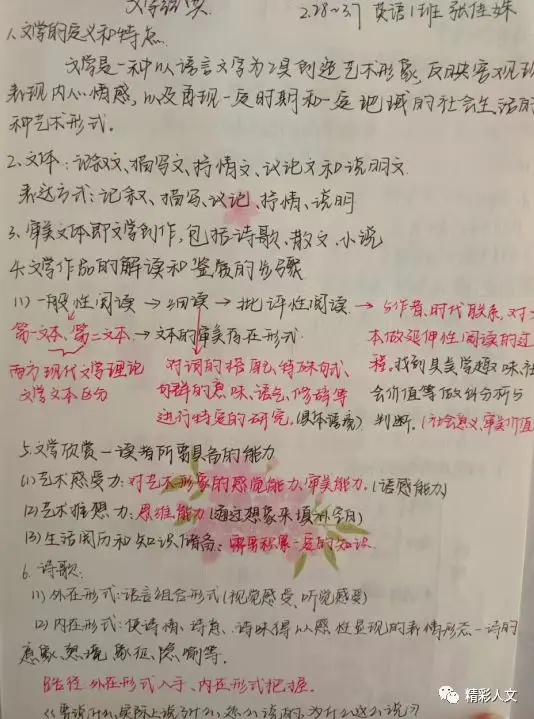 文学经典 2.28~3.7 英语1班 张佳姝
1.文学的定义和特点
文学是一种以语言文字为工具创造艺术形象,反映客观现
表现内心情感,以及再现一定时期和一定地域的社会生活的
种艺术形式.
2.文体:记叙文、描写文、抒情文、议论文和说明文.
表达方式:记叙、描写、议论、抒情、说明
3.审美文本即文学创作,包括诗歌、散文、小说
4.文学作品的解读和鉴赏的步骤
(1)一般性阅读→细读→批评性阅读→与作者,时代联系,对文
第一文本、第二文本.→文本的审美存在形式. 本做延伸性阅读的过
西方现代文学理论 对词的搭配,特殊句式、 程.找到其美学趣味,社
文学文本区分 句群的意味、语气、修辞等 会价值等做出分析与
进行特定的研究.(具体语境) 判断.(社会意义,审美价值
5.文学欣赏—读者所需具备的能力
(1)艺术感受力:对艺术形象的感觉能力、审美能力.(语感能力)
(2)艺术推想力:思维能力(通过想象来填补空白)
(3)生活阅历和知识储备:需要积累一定的知识.
6.诗歌:
(1)外在形式:语言组合形式(视觉感受、听觉感受)
(2)内在形式:使诗情、诗意、诗味得以感性显现的表情形态—诗的
意象、意境、象征、隐喻等.
路径:外在形式入手、内在形式把握.
要说什么,实际上说了什么,怎么说的,为什么这么说
精彩人文